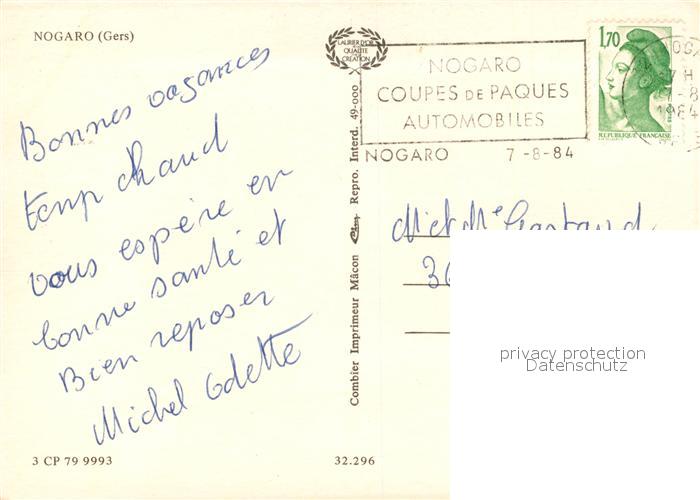 NOGARO (Gers)
Bonnes vacances
temp chaud
vous espère en
bonne santé et
Bien reposer
Michel Odette
3 CP 79 9993
32.296
Combier Imprimeur Mâcon Repro. Interd. 49-000
LAURIER D'OR
QUALITÉ
CRÉATION
NOGARO
COUPES DE PAQUES
AUTOMBILES
NOGARO 7 -8-84
1,70
REPUBLIQUE FRANÇAISE
1984
privacy protection
Datenschutz